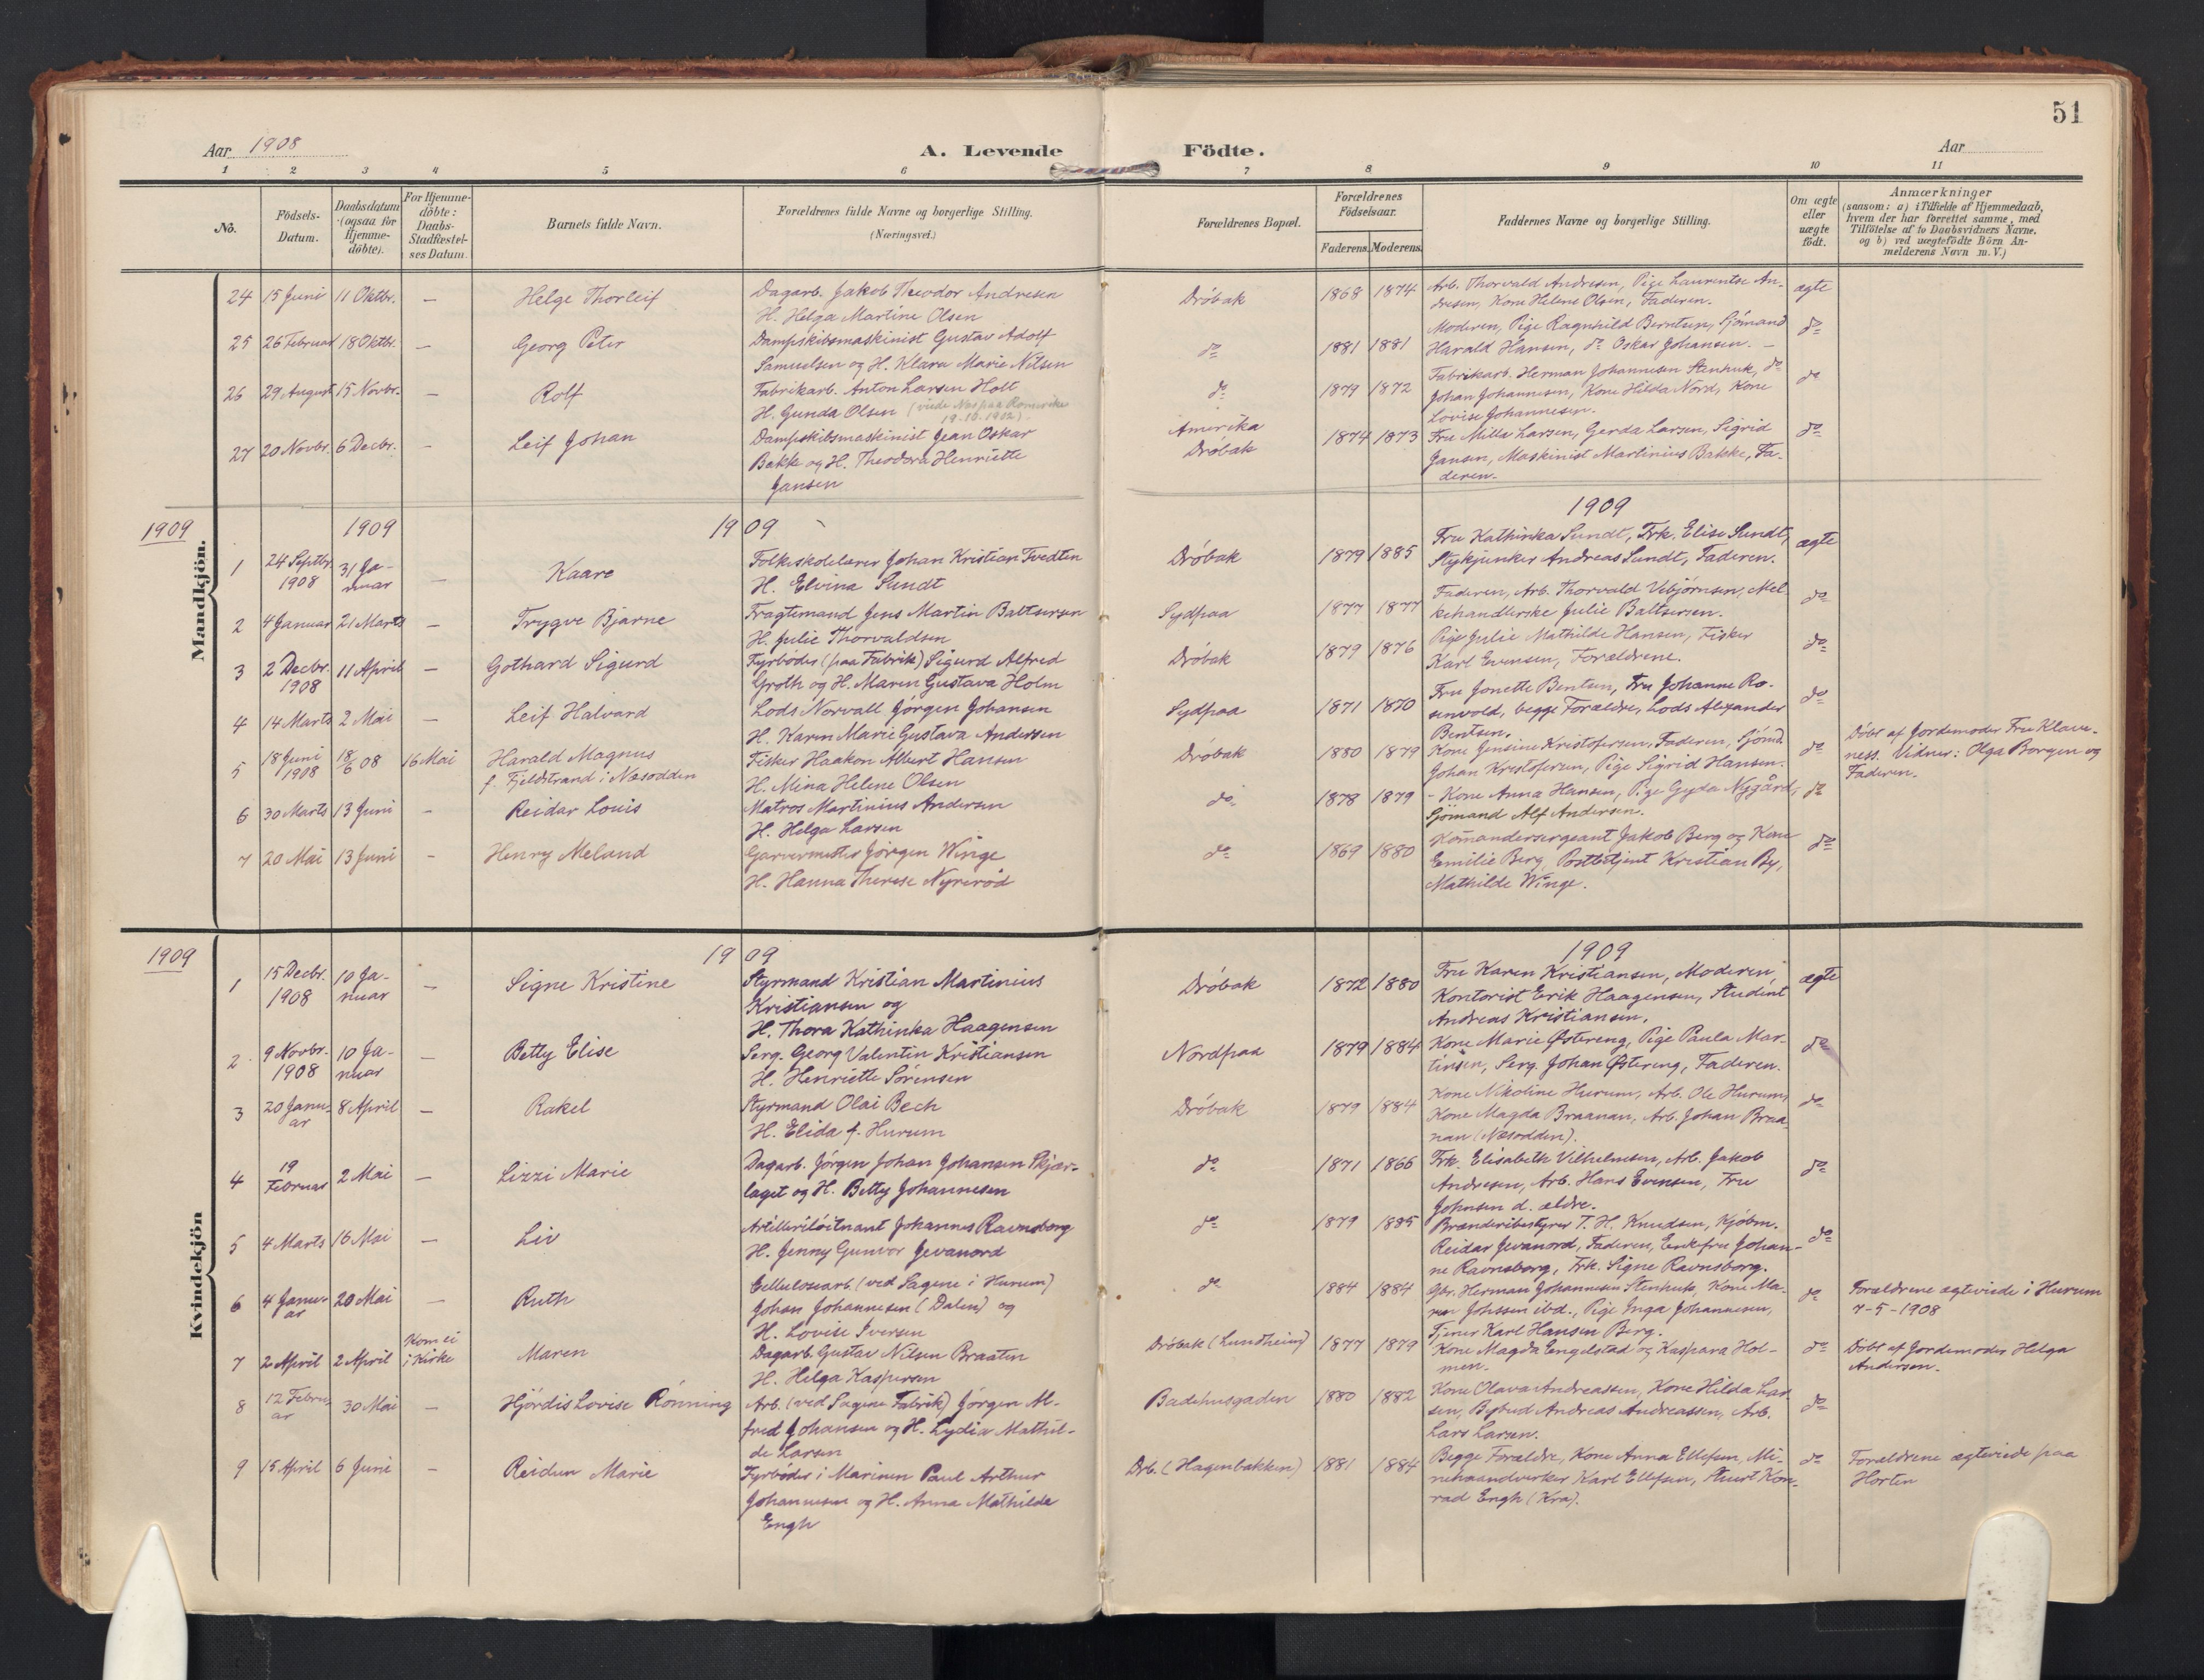 51
Aar 1908
A. Levende Födte.
Aar
1 2 3 4 5 6 7 8 9 10 11
No.
Födsels-
Datum.
Daabsdatum
(ogsaa for
Hjemme-
döbte).
For Hjemme-
döbte:
Daabs-
Stadfæstel-
ses Datum.
Barnets fulde Navn.
Forældrenes fulde Navne og borgerlige Stilling.
(Næringsvei.)
Forældrenes Bopæl.
Forældrenes
Födselsaar.
Faderens. Moderens.
Faddernes Navne og borgerlige Stilling.
Om ægte
eller
uægte
födt.
Anmærkninger
(saasom: a) i Tilfælde af Hjemmedaab,
hvem der har forrettet samme, med
Tilföielse af to Daabsvidners Navne,
og b) ved uægtefödte Börn An-
melderens Navn m.V.)
Mandkjön.
24 15 Juni 11 Oktbr. — Helge Thorleif
Dagarb. Jakob Theodor Andresen
H. Helga Martine Olsen
Dröbak 1868 1874
Arb. Thorvald Andresen, Pige Laurentse An-
dresen, Kone Helene Olsen, Faderen.
ægte
25 26 Februar 18 Oktbr. — Georg Peter
Dampskibsmaskinist Gustav Adolf
Samuelsen og H. Klara Marie Nilsen
do 1881 1881
Moderen, Pige Ragnhild Berntsen, Sjömand
Harald Hansen, do Oskar Johansen. —
do
26 29 August 15 Novbr. — Rolf
Fabrikarb. Anton Larsen Holt
H. Gunda Olsen (viede Nes paa Romerike
19.10.1902).
do 1879 1872
Fabrikarb. Herman Johannesen Stenhuk, do
Johan Johannesen, Kone Hilda Nord, Kone
Lovise Johannesen.
do
27 20 Novbr. 6 Decbr. — Leif Johan
Dampskibsmaskinist Jean Oskar
Bakk og H. Theodora Henriette
Jansen
Amerika
Dröbak
1874 1873
Fru Milla Larsen, Gerda Larsen, Sigrid
Jansen, Maskinist Martinius Bakke, Fa-
deren.
do
1909 1909 1909 1909
1 24 Septbr. 1908 31 Ja-
nuar — Kaare
Folkeskolelærer Johan Kristian Tvedten
H. Elvina Sundt
Dröbak 1879 1885
Fru Kathinka Sundt, Frk. Elise Sundt,
Stykjunker Andreas Sundt, Faderen.
ægte
2 4 Januar 21 Marts — Trygve Bjarne
Fragtemand Jens Martin Baltsersen
H. Julie Thorvaldsen
Sydpaa 1877 1877
Faderen, Arb. Thorvald Vebjørnsen, Mel-
kehandlerske Julie Baltsersen.
do
3 2 Decbr. 1908 11 April — Gothard Sigurd
Fyrböder (paa Fabrik) Sigurd Alfred
Groth og H. Maren Gustava Holm
Dröbak 1879 1876
Pige Julie Mathilde Hansen, Fisker
Karl Evensen, Forældrene.
do
4 14 Marts 2 Mai — Leif Halvard
Lods Norvall Jörgen Johansen
H. Karen Marie Gustava Andersen
Sydpaa 1871 1870
Fru Jonette Bentsen, Fru Johanne Ro-
senvold, begge Forældre, Lods Alexander
Bentsen.
do
5 18 Juni 1908 18/6 08 16 Mai Harald Magnus
f. Fjeldstrand i Næsodden
Fisker Haakon Albert Hansen
H. Mina Helene Olsen
Dröbak 1880 1879
Kone Jensine Kristofersen, Faderen, Sjömd.
Johan Kristofersen, Pige Sigrid Hansen.
do
Döbt af Jordemoder Fru Klave-
ness. Vidner: Olga Borgen og
Faderen.
6 30 Marts 13 Juni — Reidar Louis
Matros Martinius Andersen
H. Helga Larsen
do 1878 1879
- Kone Anna Hansen, Pige Gyda Nygård,
Sjömand Alf Andersen.
do
7 20 Mai 13 Juni - Henry Meland
Garvermester Jörgen Winge
H. Hanna Therese Nyreröd
do 1869 1880
Komandersergeant Jakob Berg og Kone
Emilie Berg, Postbetjent Kristian By,
Mathilde Winge.
do
Kvindekjön
1909 1909 1909
1 15 Decbr. 1908 10 Ja-
nuar — Signe Kristine
Styrmand Kristian Martinius
Kristiansen og
H. Thora Kathinka Haagensen
Dröbak 1872 1880
Fru Karen Kristiansen, Moderen,
Kontorist Erik Haagensen, Student
Andreas Kristiansen.
ægte
2 9 Novbr. 1908 10 Ja-
nuar — Betty Elise
Serg. Georg Valentin Kristiansen
H. Henriette Sörensen
Nordpaa 1879 1884
Kone Marie Østereng, Pige Paula Mar-
tinsen, Serg. Johan Østereng, Faderen.
do
3 20 Janu-
ar 8 April — Rakel
Styrmand Olai Bech
H. Elida f. Hurum
Dröbak 1879 1884
Kone Nikoline Hurum, Arb. Ole Hurum,
Kone Magda Braanan, Arb. Johan Braa-
nan (Næsodden).
do
4 19 Februar 2 Mai — Lizzi Marie
Dagarb. Jörgen Johan Johansen Skjær-
laget og H. Betty Johannesen
do 1871 1866
Frk. Elisabeth Vilhelmsen, Arb. Jakob
Andresen, Arb. Hans Evensen, Fru
Johnsen d. ældre.
do
5 4 Marts 16 Mai — Liv
Artilleriløitnant Johannes Ravnsborg
H. Jenny Gunvor Jevanord
do 1879 1885
Brænderibestyrer T. H. Knudsen, Kjöbm.
Reidar Jevanord, Faderen, Enkefru Johan-
ne Ravnsborg, Frk. Signe Ravnsborg.
do
6 4 Janu-
ar 20 Mai — Ruth
Cellulosearb. (ved Sagene i Hurum)
Johan Johannesen (Dalen) og
H. Lovise Iversen
do 1884 1884
Gbr. Herman Johannesen Stenhuk, Kone Ma-
ren Johssen ibd., Pige Inga Johannesen,
Tjener Karl Hansen Berg.
do
Forældrene ægteviede i Hurum
7-5-1908
7 2 April 2 April Kom ei
i Kirke Maren
Dagarb. Gustav Nilsen Braaten
H. Helga Kaspersen
Dröbak (Lundheim) 1877 1879
Kone Magda Engelstad og Kaspara Hol-
men.
do
Döbt af Jordemoder Helga
Andersen.
8 12 Febru-
ar 30 Mai — Hjördis Lovise Rönning
Arb. (ved Sagene Fabrik) Jörgen Al-
fred Johansen og H. Lydia Mathil-
de Larsen
Badehusgaden 1880 1882
Kone Olava Andreassen, Kone Hilda Lar-
sen, Bybud Andreas Andreassen, Arb.
Lars Larsen.
do
9 15 April 6 Juni — Reidun Marie
Fyrböder i Marinen Paul Arthur
Johannesen og H. Anna Mathilde
Engh
Drb. (Hagenbakken) 1881 1884
Begge Forældre, Kone Anna Ellefsen, Mi-
nehaandverker Karl Ellefsen, Stuert Kon-
rad Engh (Kra).
do
Forældrene ægteviede paa
Horten